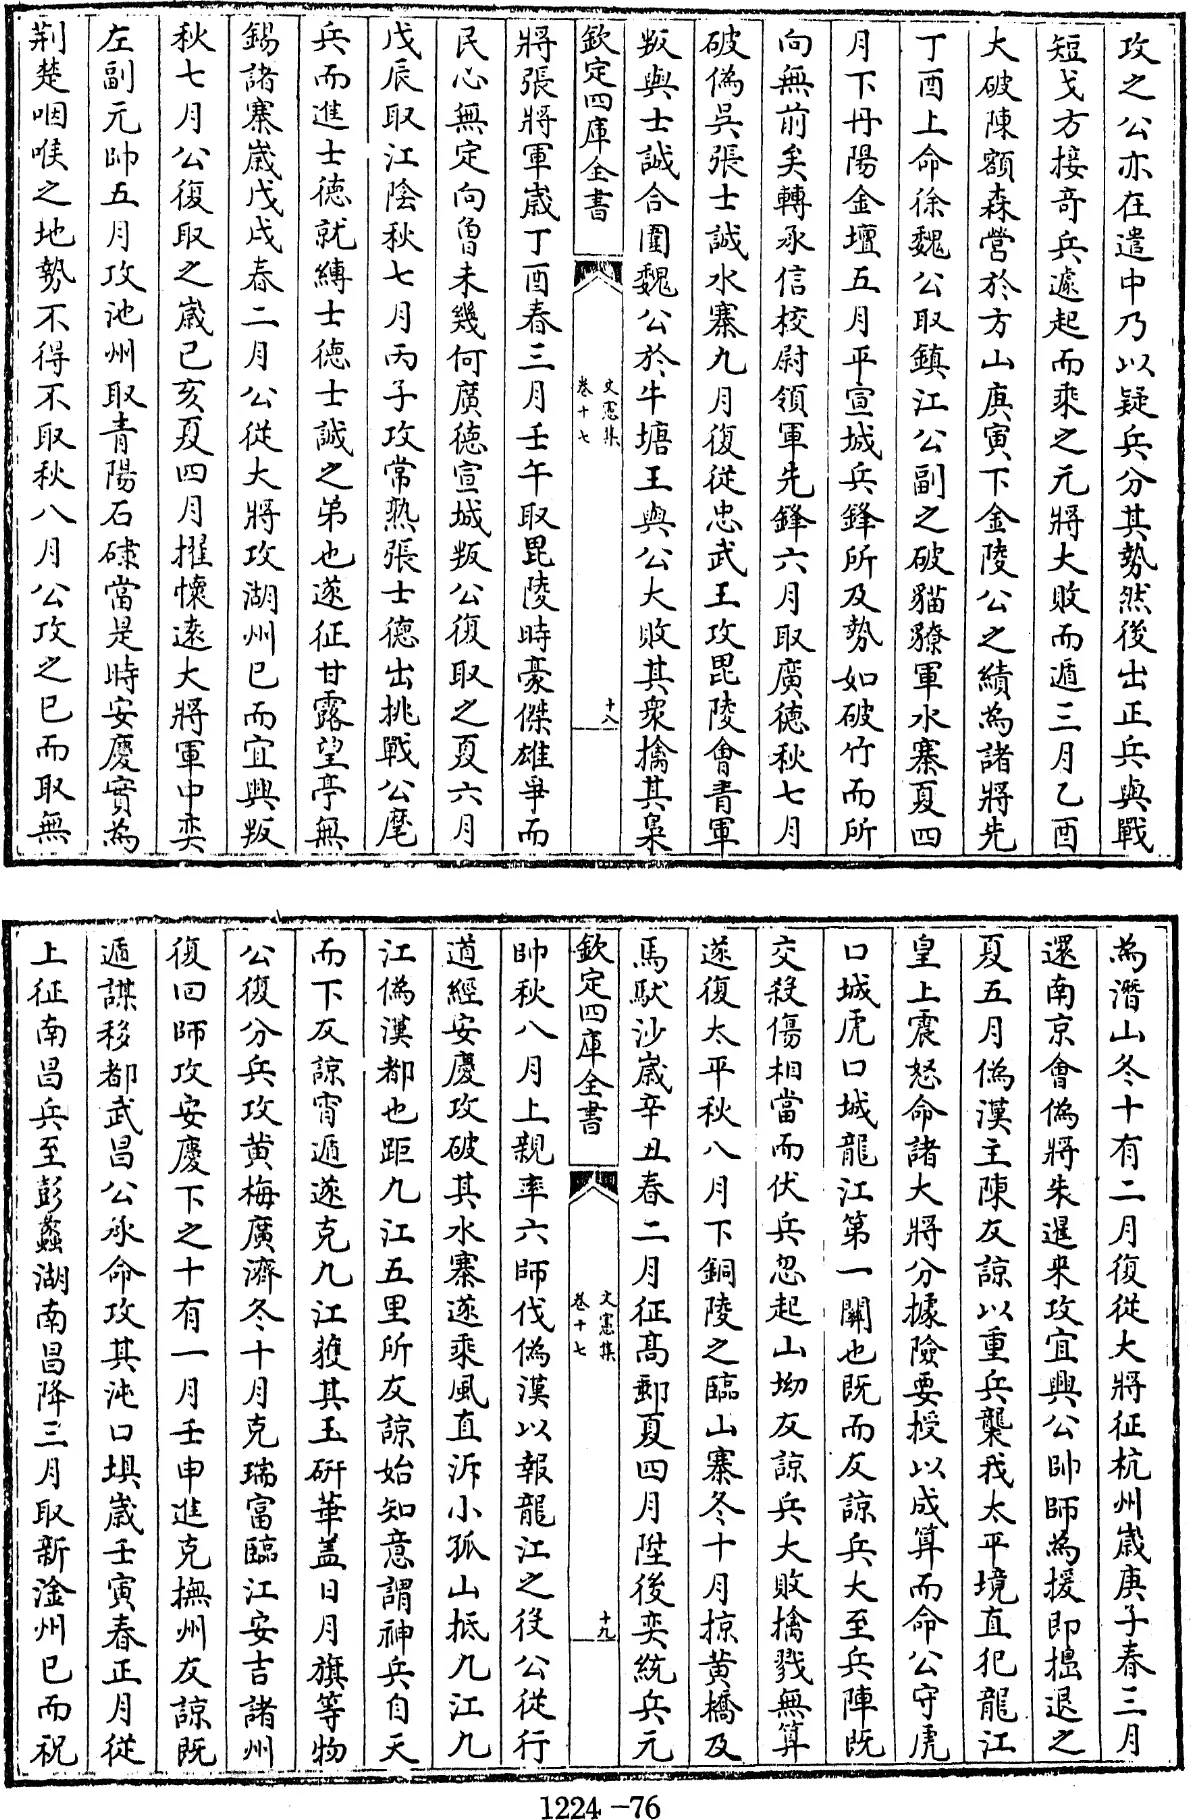 攻之公亦在遣中乃以疑兵分其勢然後出正兵與戰
短戈方接奇兵遽起而乘之元將大敗而遁三月乙酉
大破陳額森營於方山庚寅下金陵公之績為諸將先
丁酉上命徐魏公取鎮江公副之破貓獠軍水寨夏四
月下丹陽金壇五月平宣城兵鋒所及勢如破竹而所
向無前矣轉承信校尉領軍先鋒六月取廣德秋七月
破偽吳張士誠水寨九月復從忠武王攻毘陵會青軍
叛與士誠合圍魏公於牛塘王與公大敗其衆擒其梟
欽定四庫全書
文憲集
卷十七
十八
將張將軍歲丁酉春三月壬午取毘陵時豪傑雄爭而
民心無定向曽未幾何廣德宣城叛公復取之夏六月
戊辰取江陰秋七月丙子攻常熟張士德出挑戰公麾
兵而進士德就縛士德士誠之弟也遂征甘露望亭無
錫諸寨歲戊戌春二月公從大將攻湖州已而宜興叛
秋七月公復取之歲己亥夏四月擢懷遠大將軍中奕
左副元帥五月攻池州取青陽石埭當是時安慶實為
荆楚咽喉之地勢不得不取秋八月公攻之已而取無
為潛山冬十有二月復從大將征杭州歲庚子春三月
還南京會偽將朱暹來攻宜興公帥師為援即搗退之
夏五月偽漢主陳友諒以重兵襲我太平境直犯龍江
皇上震怒命諸大將分據險要授以成算而命公守虎
口城虎口城龍江第一關也既而友諒兵大至兵陣既
交殺傷相當而伏兵忽起山坳友諒兵大敗擒戮無算
遂復太平秋八月下銅陵之臨山寨冬十月掠黄橋及
馬馱沙歲辛丑春二月征高郵夏四月陞後奕統兵元
欽定四庫全書
文憲集
卷十七
十九
帥秋八月上親率六師伐偽漢以報龍江之役公從行
道經安慶攻破其水寨遂乘風直泝小孤山抵九江九
江偽漢都也距九江五里所友諒始知意謂神兵自天
而下友諒宵遁遂克九江獲其玉斫華盖日月旗等物
公復分兵攻黄梅廣濟冬十月克瑞富臨江安吉諸州
復回師攻安慶下之十有一月壬申進克撫州友諒既
遁謀移都武昌公承命攻其沌口埧歲壬寅春正月從
上征南昌兵至彭蠡湖南昌降三月取新淦州已而祝
1224—76